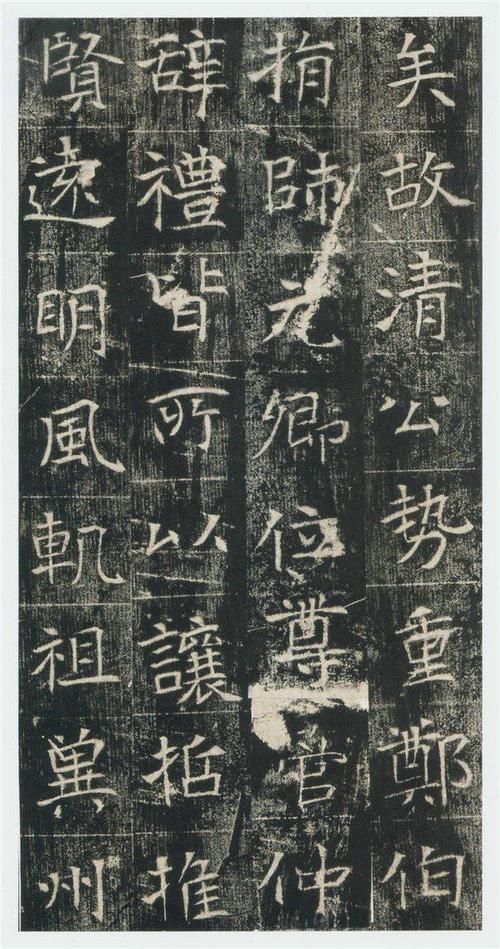 矣故清公势重鄭伯
捐師元卿位尊管仲
辞禮皆所以讓括推
賢遠明風軌祖冀州